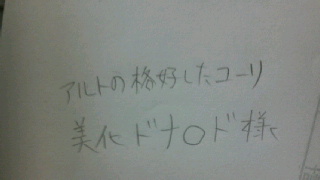 アルトの格好したコーリ
美化ドナ○ド様